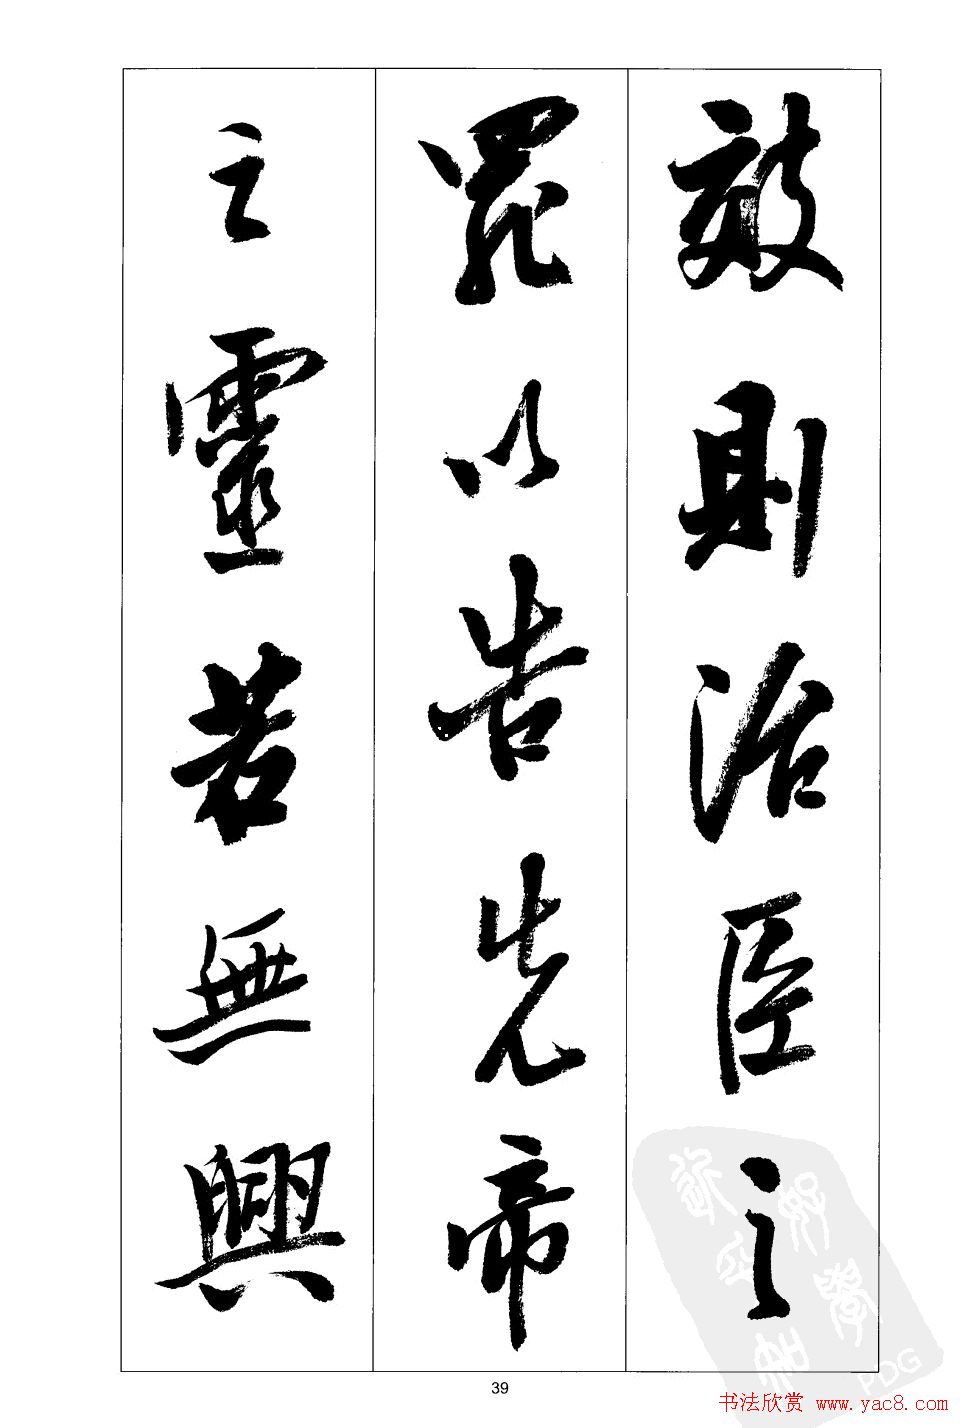 效則治臣之
罪以告先帝
之靈若無興
39
PDG
书法欣赏 www.yac8.com